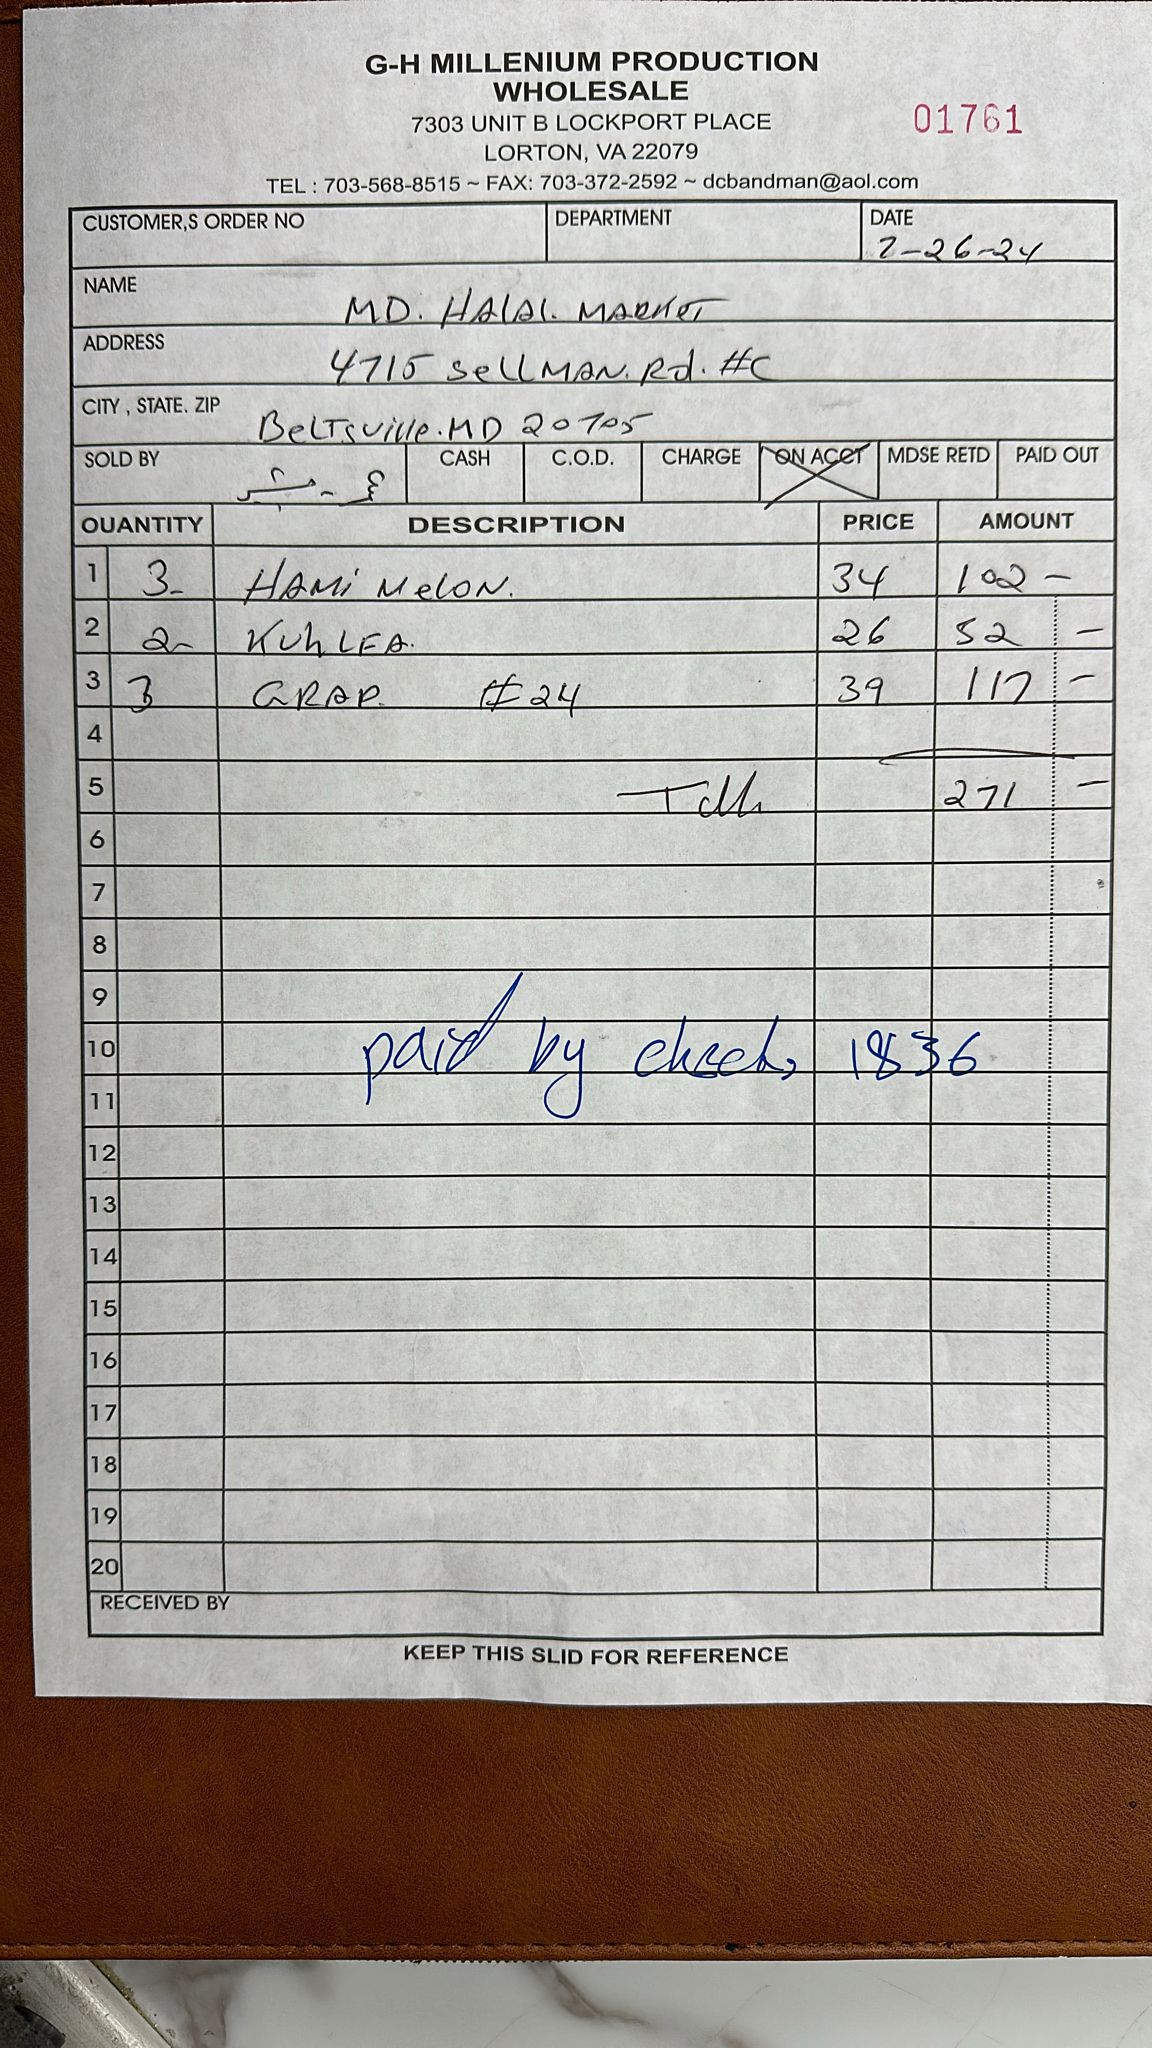 G-H MILLENIUM PRODUCTION
WHOLESALE
01761
7303 UNIT B LOCKPORT PLACE
LORTON, VA 22079
TEL : 703-568-8515 ~ FAX: 703-372-2592 ~ dcbandman@aol.com
CUSTOMER,S ORDER NO DEPARTMENT DATE
2-26-24
NAME MD. HALAL. MARKET
ADDRESS 4715 SellMAN. Rd. #C
CITY , STATE. ZIP BeLTSville. MD 20705
SOLD BY CASH C.O.D. CHARGE ON ACCT MDSE RETD PAID OUT
QUANTITY DESCRIPTION PRICE AMOUNT
1 3- HAMi MeLON. 34 102 -
2 2- KUhLFA. 26 52 -
3 3 GRAP. #24 39 117 -
4
5 271 -
6
7
8
9
10 paid by check, 1836
11
12
13
14
15
16
17
18
19
20
RECEIVED BY
KEEP THIS SLID FOR REFERENCE